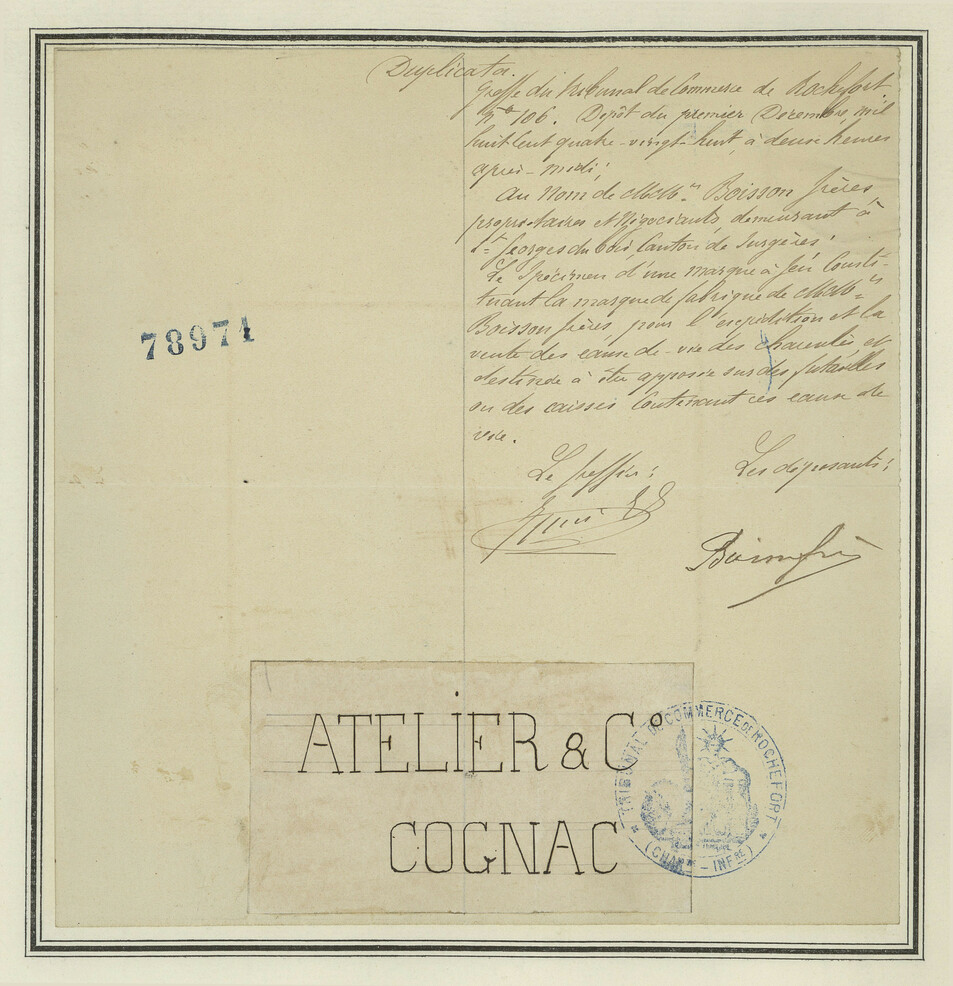 Duplicata.
Greffe du Tribunal de Commerce de Rochefort.
N° 106. Depôt du premier Decembre mil
huit cent quatre-vingt-huit, à deux heures
après-midi;
Au Nom de MM.rs Boisson frères,
propriétaires et Négociants, demeurant à
St. Georges du bois, Canton de Surgères;
Le Spécimen d'une marque à feu Consti-
tuant la marque de fabrique de MM.rs
Boisson frères, pour l'expédition et la
vente des eaux-de-vie des charentes et
destinée à être apposée sur des futailles
ou des caisses Contenant ces eaux de
vie.
78971
Le Greffier:
Les déposants:
ATELIER & Co
COGNAC
TRIBUNAL DE COMMERCE DE ROCHEFORT
(CHARte - INFRE)